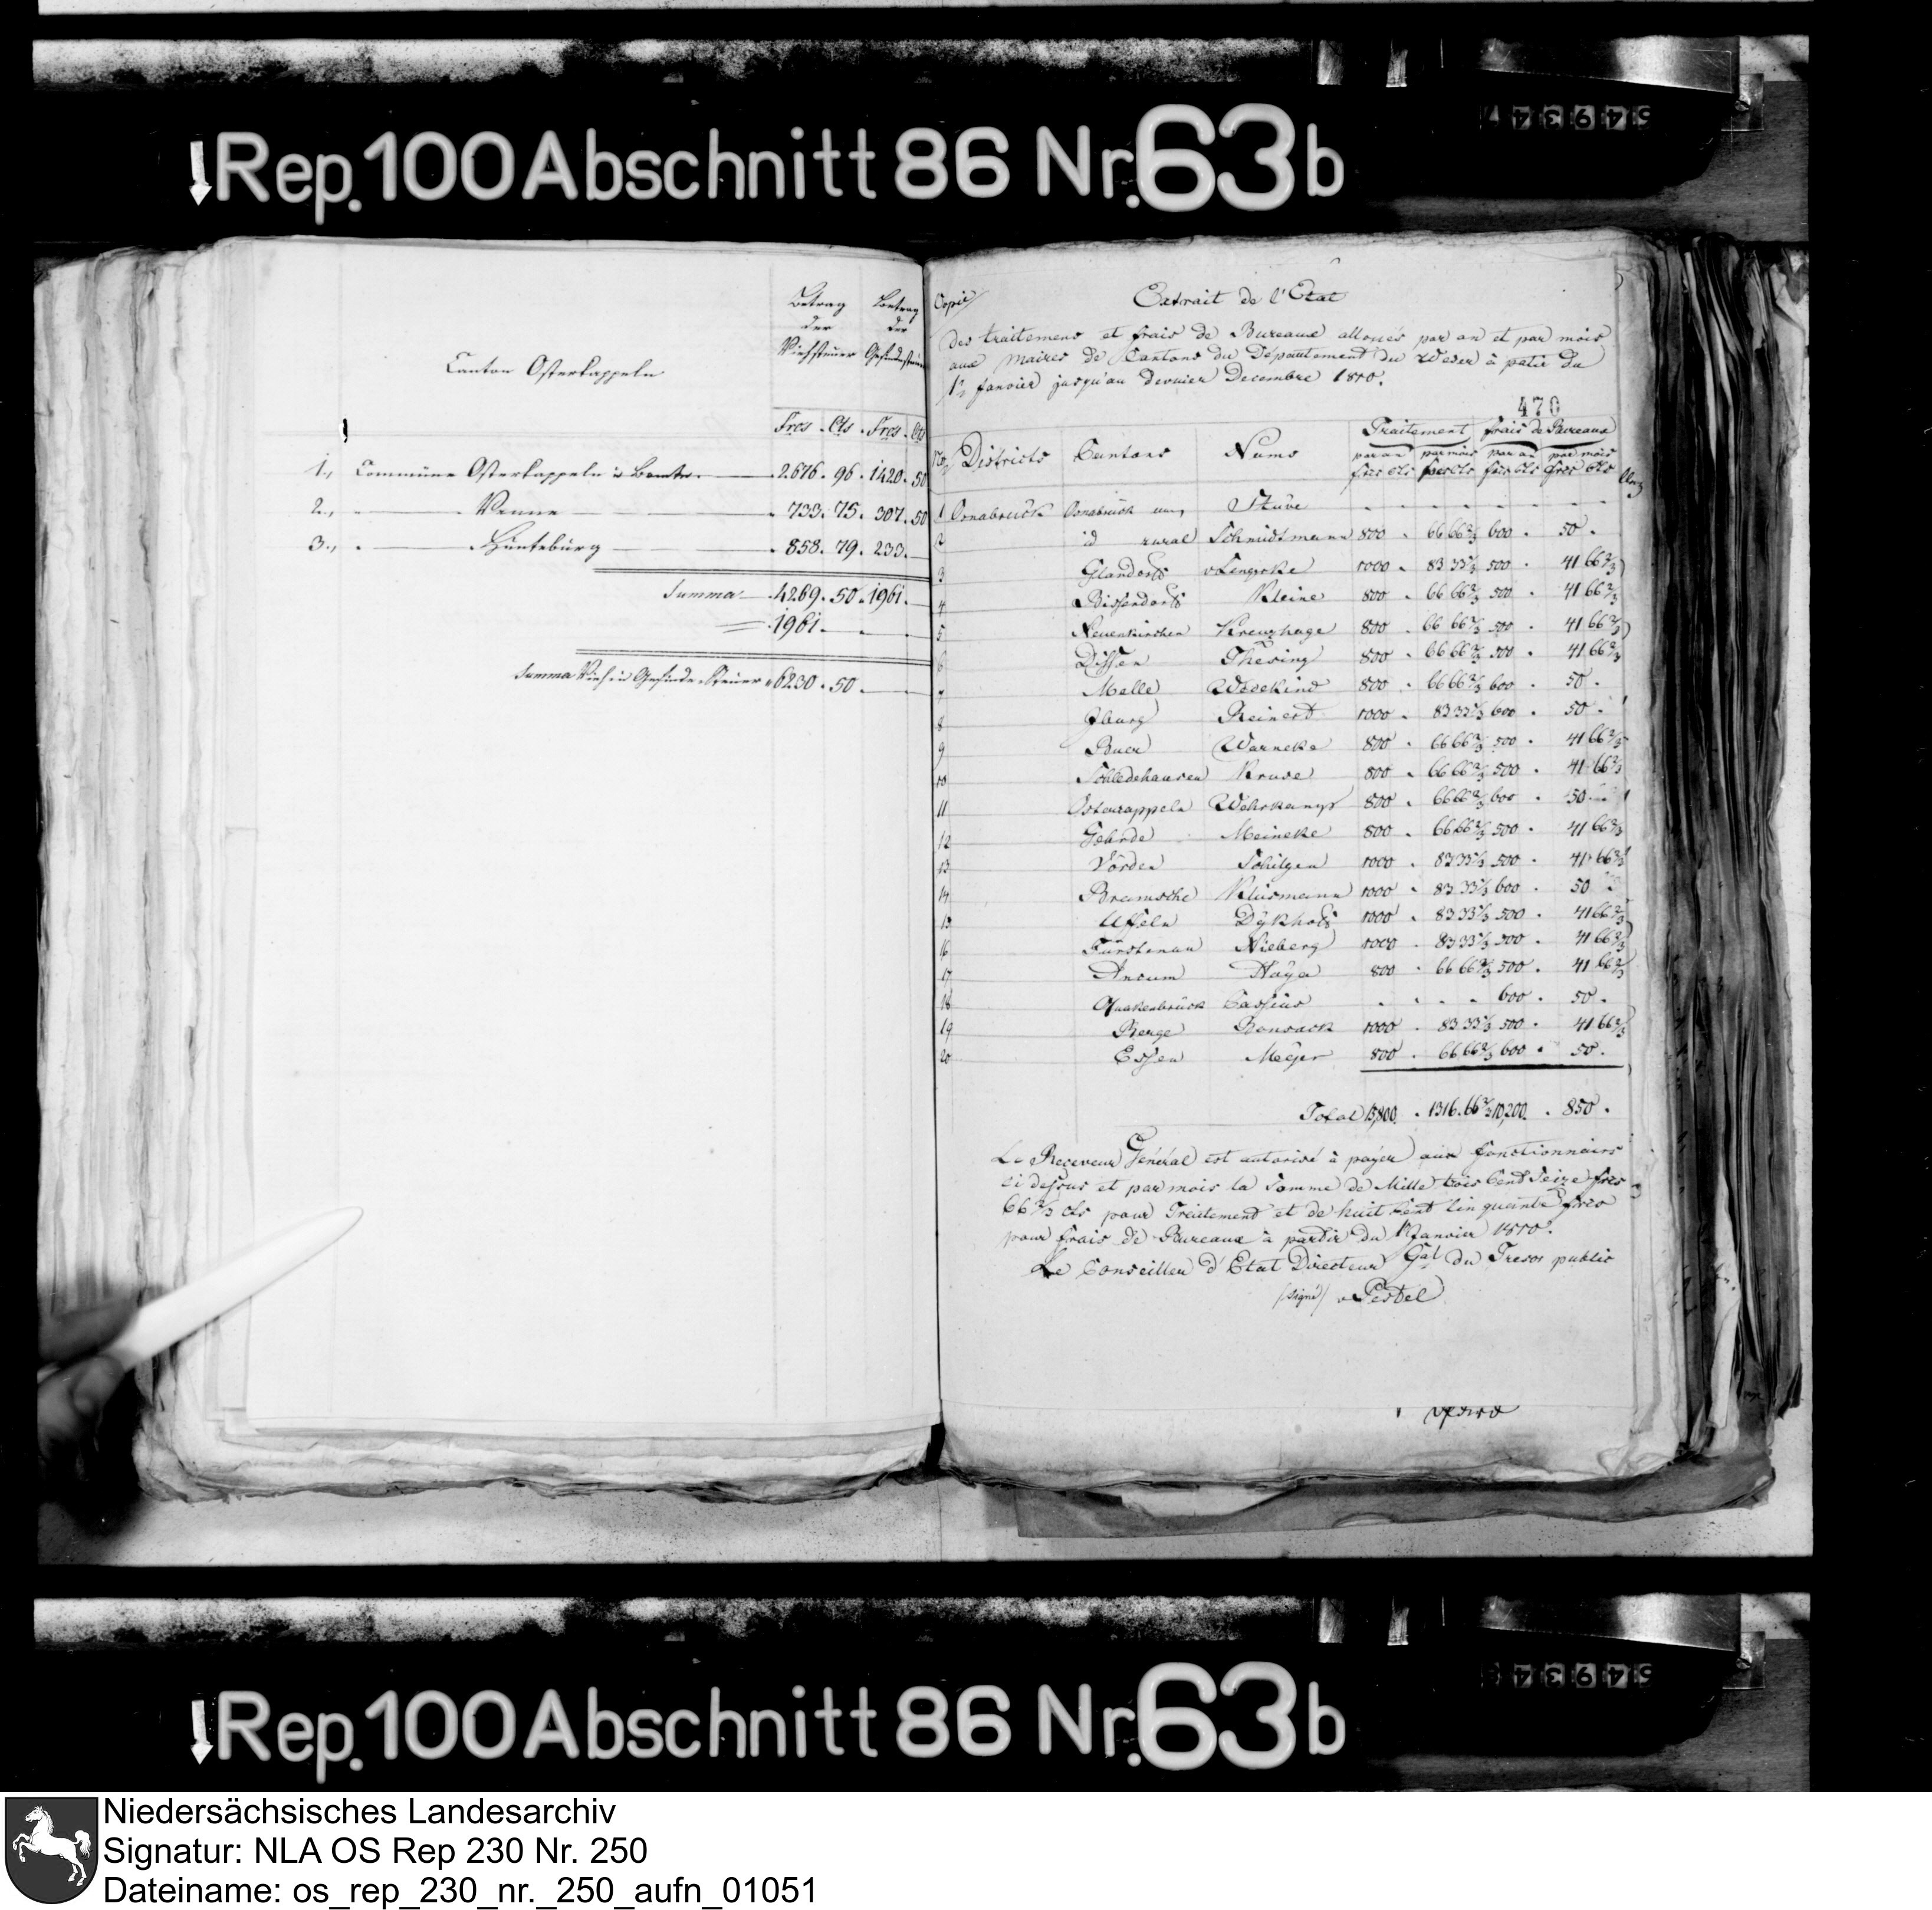 Rep. 100 Abschnitt 86 Nr. 63b
Canton Osterkappeln
Betrag der Viehsteuer
Betrag der Gesindesteuer
Frcs. Cts. Frcs. Cts
1., Commüne Osterkappeln 2676. 96. 1420. 50
2., Venne 733. 75. 307. 50
3., Hünteburg 858. 79. 233.
Summa 4269. 50. 1961.
1961.
Summa Vieh u Gesinde Steuer 6230. 50.
Copie
Extrait de l'Etat
des traitemens et frais de Bureaux alloués par an et par mois
aux Maires de Cantons du Departement du Weser à patir du
1r Janvier jusqu'au dernier Decembre 1810.
470
No Districts Cantons Noms Traitement frais de Bureaux
par an par mois par an par mois
frcs cts frcs cts frcs cts frcs cts
1 Osnabrück Osnabrück Stüve
2 id rural Schmidtmann 800 66 66 2/3 600 50
3 Glandorf vLengerke 1000 83 33 1/3 500 41 66 2/3
4 Bissendorf Kleine 800 66 66 2/3 500 41 66 2/3
5 Neuenkirchen Kreuzhage 800 66 66 2/3 500 41 66 2/3
6 Dissen Thesing 800 66 66 2/3 500 41 66 2/3
7 Melle Wedekind 800 66 66 2/3 600 50
8 Jburg Reinert 1000 83 33 1/3 600 50
9 Buer Warneke 800 66 66 2/3 500 41 66 2/3
10 Schledehausen Kruse 800 66 66 2/3 500 41 66 2/3
11 Ostercappeln Wehrkamp 800 66 66 2/3 600 50
12 Gehrde Meineke 800 66 66 2/3 500 41 66 2/3
13 Vörden Schilgen 1000 83 33 1/3 500 41 66 2/3
14 Bramsche Klusmann 1000 83 33 1/3 600 50
15 Uffeln Dÿkhoff 1000 83 33 1/3 500 41 66 2/3
16 Fürstenau Nieberg 1000 83 33 1/3 500 41 66 2/3
17 Ancum Haÿe 800 66 66 2/3 500 41 66 2/3
18 Quakenbrück Cassius 600 50
19 Menge Bonsack 1000 83 33 1/3 500 41 66 2/3
20 Essen Meÿer 800 66 66 2/3 600 50
Total 15,800. 1316. 66 2/3 10,200. 850.
Le Receveur Général est autorisé à payer aux fonctionnairs
ci dessus et par mois la Somme de Mille trois Cent Seize frcs
66 2/3 cts pour Traitement et de huit Cent Cinquante frcs
pour frais de Bureaux à partir du 1r Janvier 1810.
Le Conseiller d'Etat Directeur Gal du Tresor public
(signé) vPestel
Rep. 100 Abschnitt 86 Nr. 63b
Niedersächsisches Landesarchiv
Signatur: NLA OS Rep 230 Nr. 250
Dateiname: os_rep_230_nr._250_aufn_01051